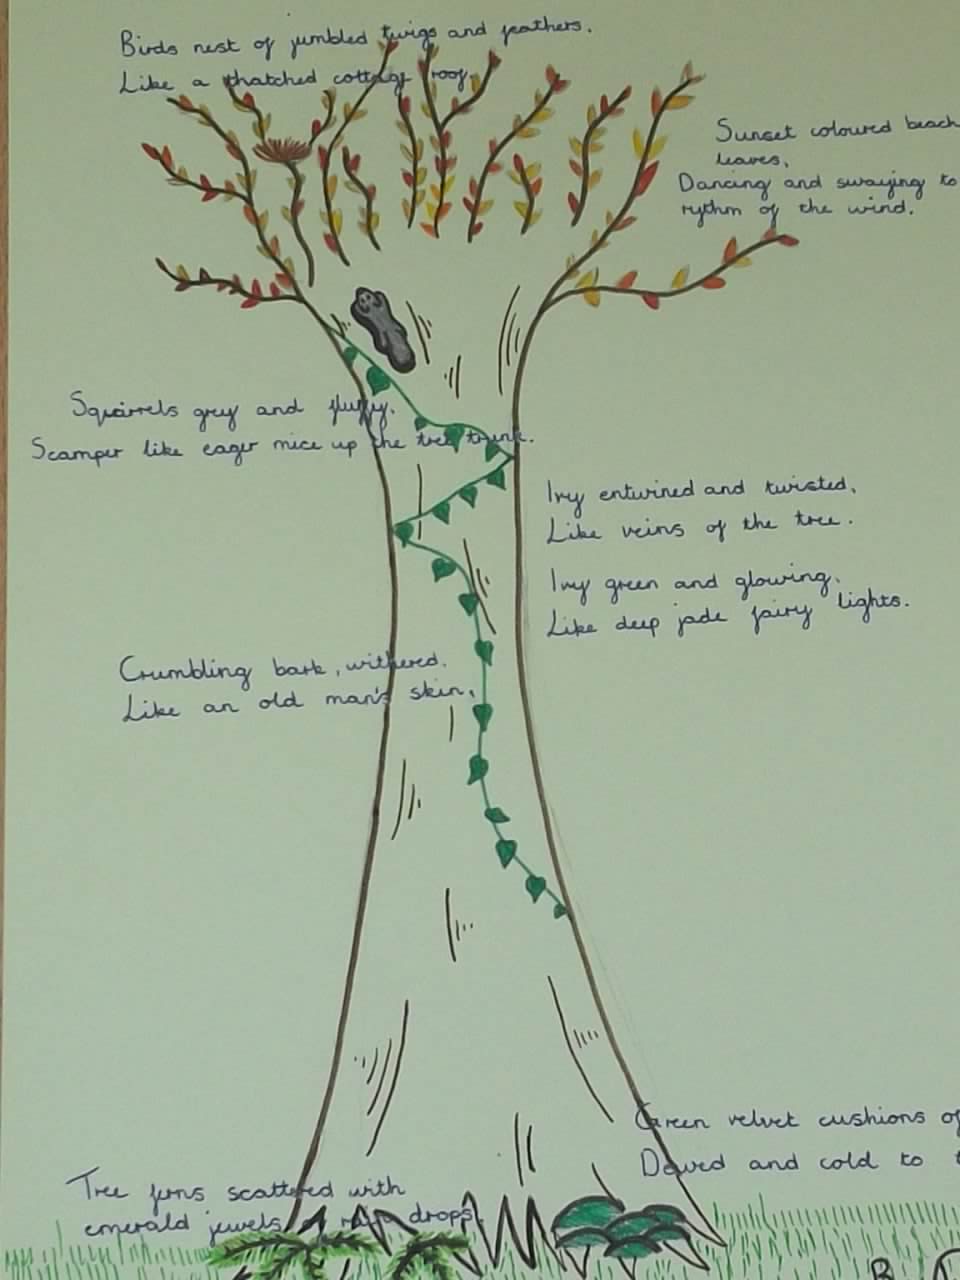 Birds nest of jumbled twigs and feathers.
Like a thatched cottage roof.
Sunset coloured beach
leaves,
Dancing and swaying to
rythm of the wind.
Squirrels grey and fluffy.
Scamper like eager mice up the tree trunk.
Ivy entwined and twisted,
Like veins of the tree.
Ivy green and glowing.
Like deep jade fairy lights.
Crumbling bark, withered.
Like an old man's skin,
Green velvet cushions of
Dewed and cold to
Tree ferns scattered with
emerald jewels of rain drops.